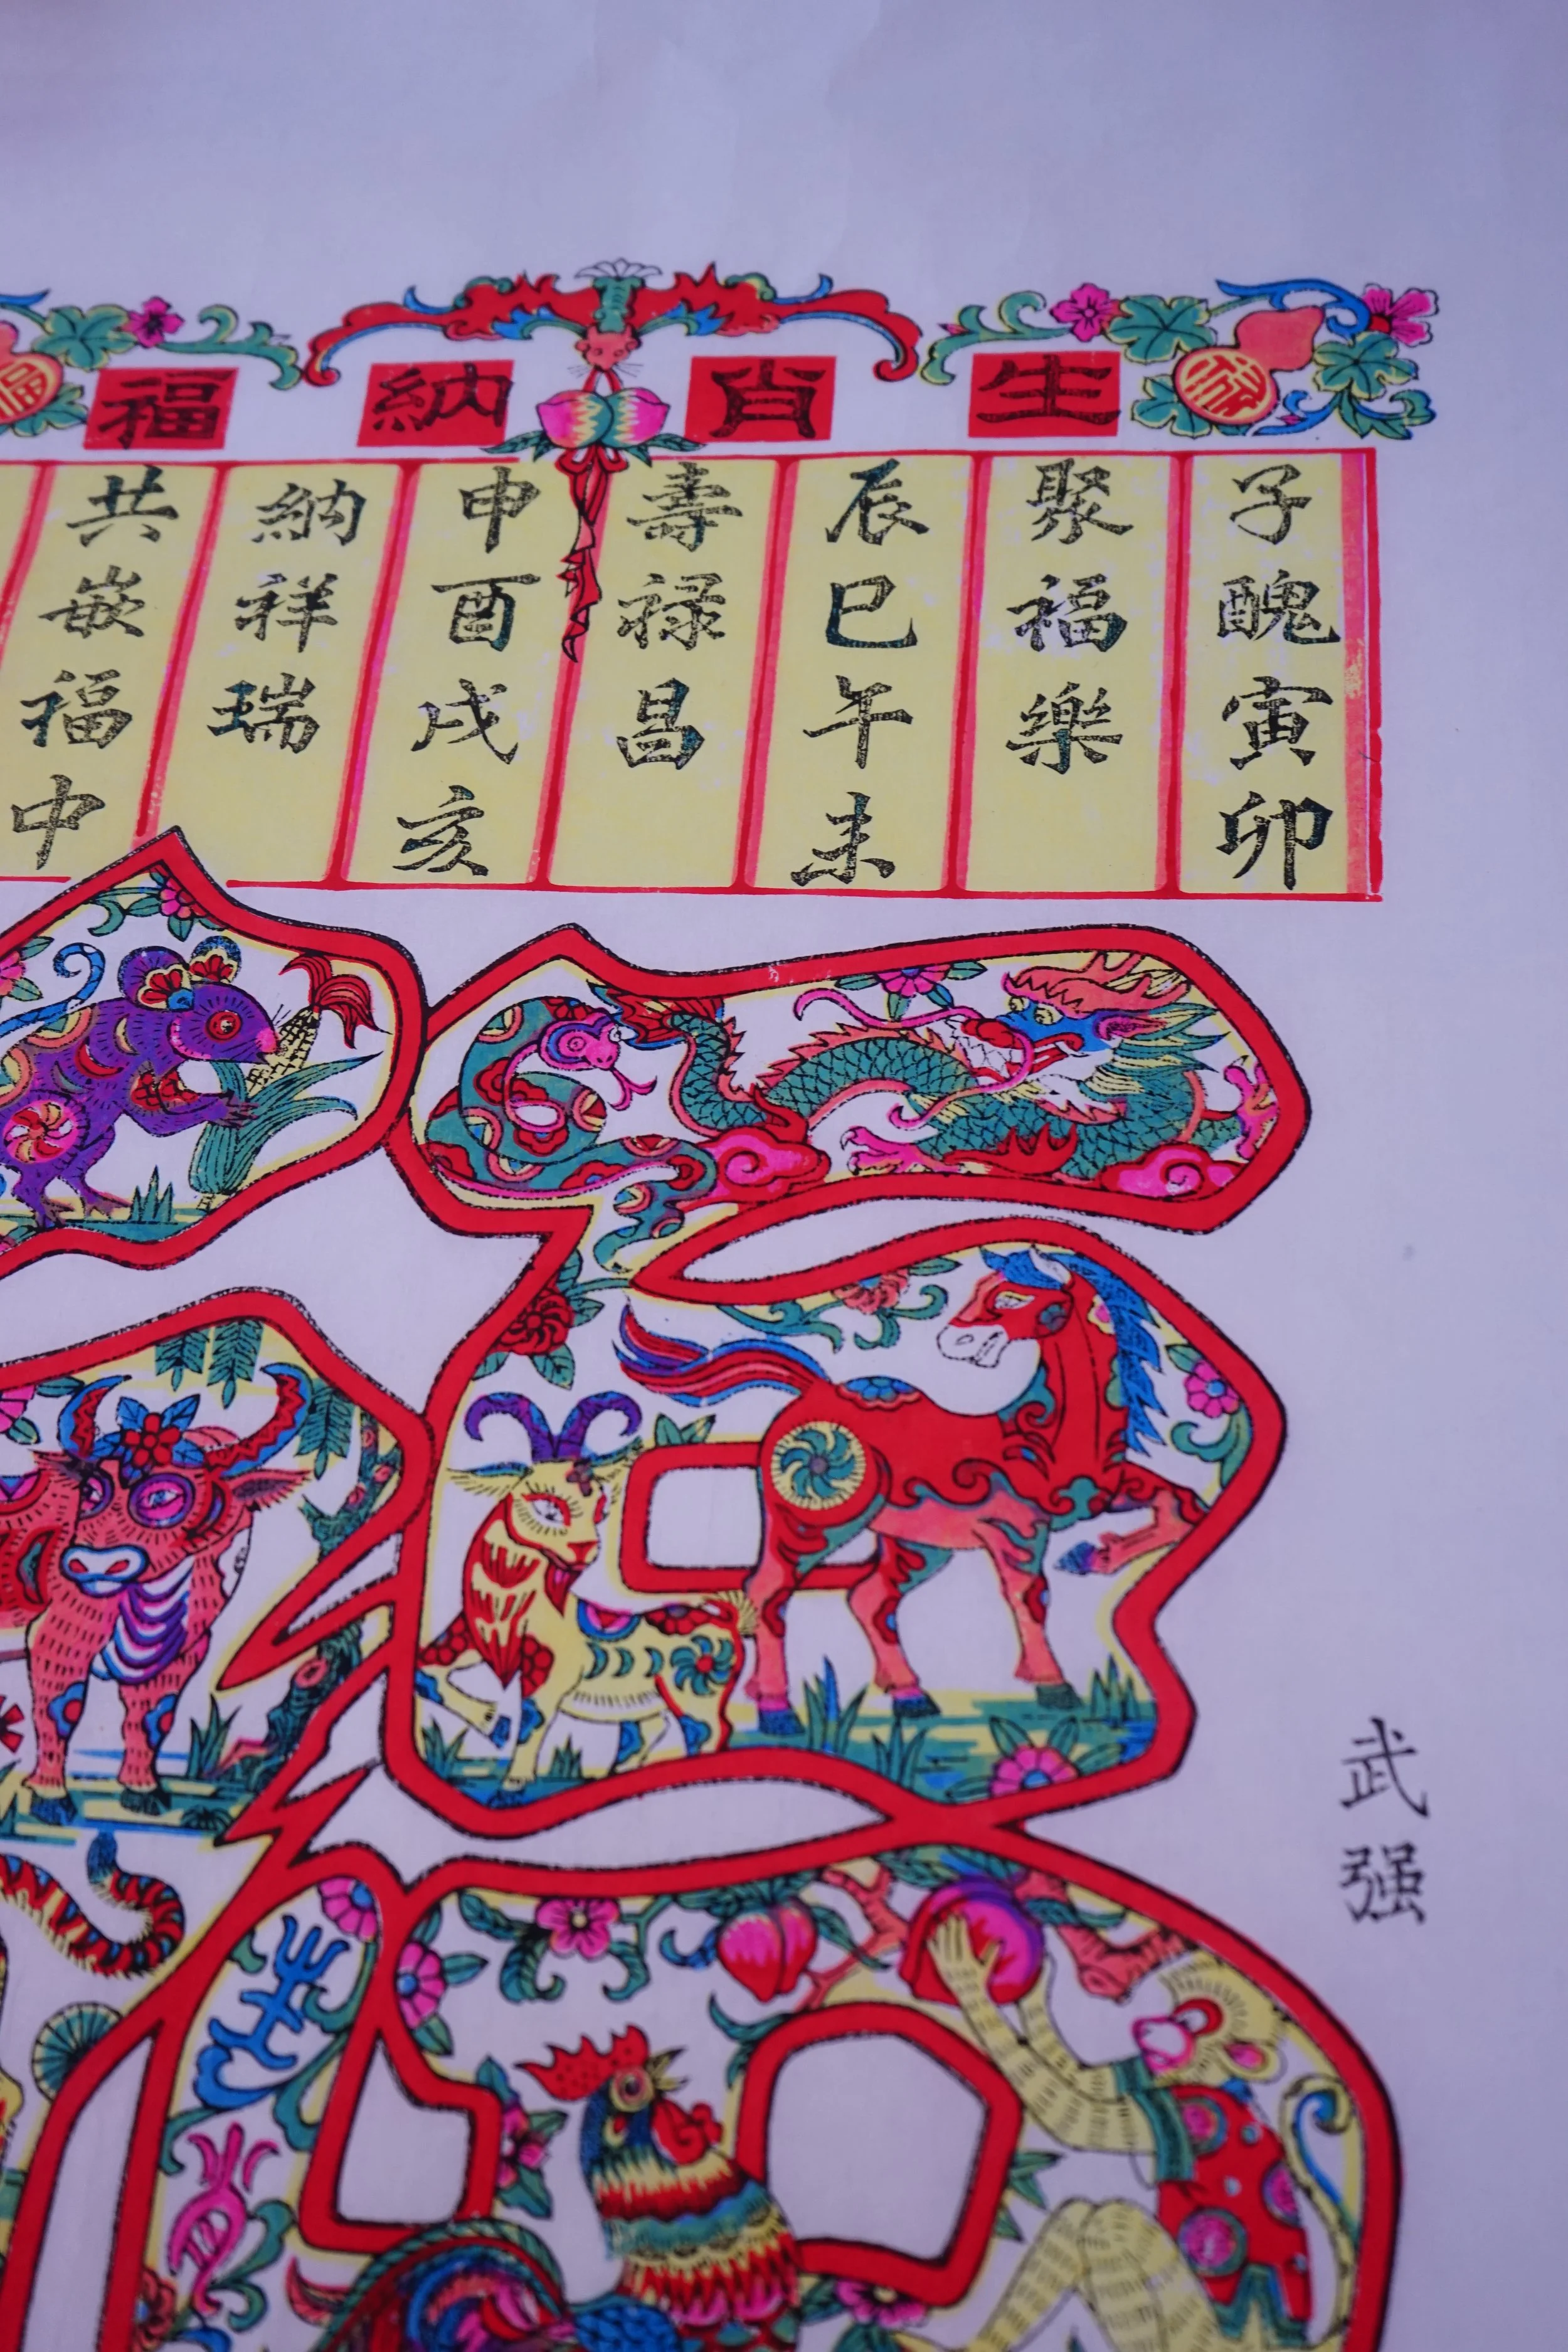 生肖納福
子醜寅卯
聚福樂
辰巳午未
壽禄昌
申酉戌亥
納祥瑞
共嵌福中
武强